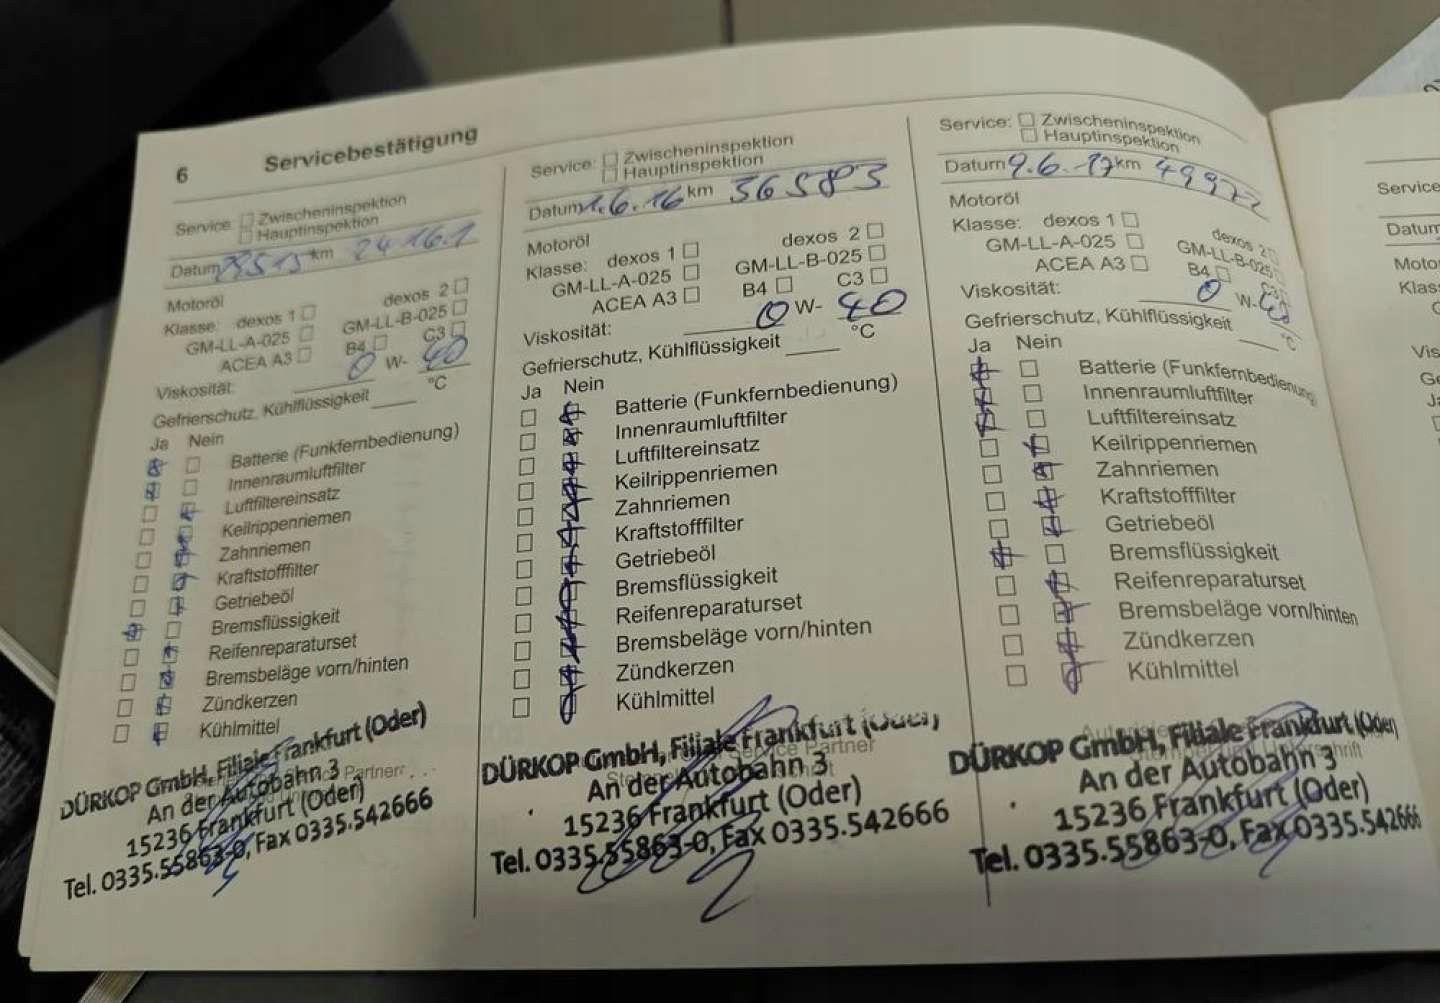 6 Servicebestätigung
Service: Zwischeninspektion
Hauptinspektion
Datum km 24161
Motoröl
Klasse: dexos 1 dexos 2
GM-LL-A-025 GM-LL-B-025
ACEA A3 B4 C3
Viskosität: 0 W- 40
Gefrierschutz, Kühlflüssigkeit °C
Ja Nein
Batterie (Funkfernbedienung)
Innenraumluftfilter
Luftfiltereinsatz
Keilrippenriemen
Zahnriemen
Kraftstofffilter
Getriebeöl
Bremsflüssigkeit
Reifenreparaturset
Bremsbeläge vorn/hinten
Zündkerzen
Kühlmittel
Partner
DÜRKOP GmbH, Filiale Frankfurt (Oder)
An der Autobahn 3
15236 Frankfurt (Oder)
Tel. 0335.55863-0, Fax 0335.542666
Service: Zwischeninspektion
Hauptinspektion
Datum 1.6.16 km
Motoröl
Klasse: dexos 1 dexos 2
GM-LL-A-025 GM-LL-B-025
ACEA A3 B4 C3
Viskosität: 0 W- 40
Gefrierschutz, Kühlflüssigkeit °C
Ja Nein
Batterie (Funkfernbedienung)
Innenraumluftfilter
Luftfiltereinsatz
Keilrippenriemen
Zahnriemen
Kraftstofffilter
Getriebeöl
Bremsflüssigkeit
Reifenreparaturset
Bremsbeläge vorn/hinten
Zündkerzen
Kühlmittel
Service Partner
DÜRKOP GmbH, Filiale Frankfurt (Oder)
An der Autobahn 3
15236 Frankfurt (Oder)
Tel. 0335.55863-0, Fax 0335.542666
Service: Zwischeninspektion
Hauptinspektion
Datum 9.6.17 km 49972
Motoröl
Klasse: dexos 1 dexos 2
GM-LL-A-025 GM-LL-B-025
ACEA A3 B4 C3
Viskosität: 0 W- 40
Gefrierschutz, Kühlflüssigkeit °C
Ja Nein
Batterie (Funkfernbedienung)
Innenraumluftfilter
Luftfiltereinsatz
Keilrippenriemen
Zahnriemen
Kraftstofffilter
Getriebeöl
Bremsflüssigkeit
Reifenreparaturset
Bremsbeläge vorn/hinten
Zündkerzen
Kühlmittel
DÜRKOP GmbH, Filiale Frankfurt (Oder)
An der Autobahn 3
15236 Frankfurt (Oder)
Tel. 0335.55863-0, Fax 0335.542666
Service
Datum